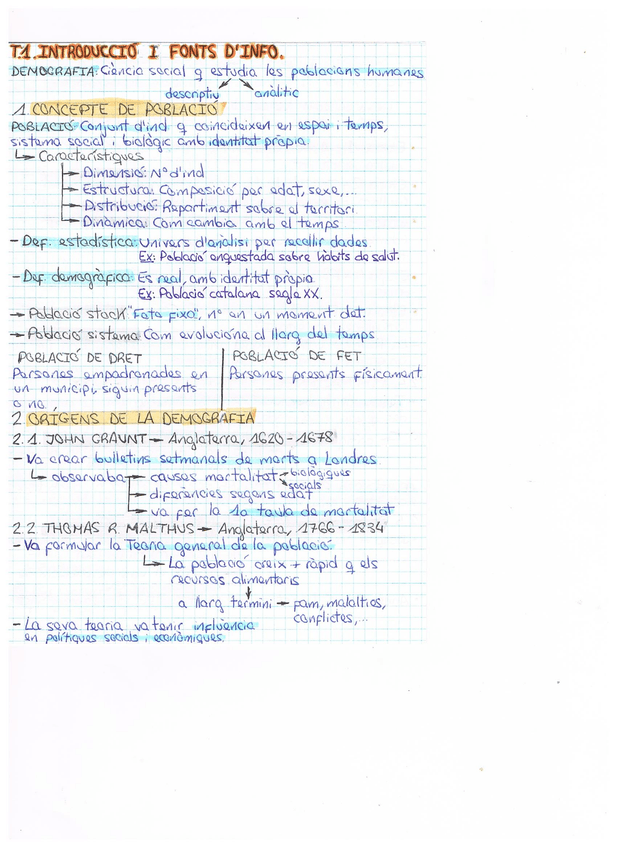 T.1. INTRODUCCIÓ I FONTS D'INFO.
DEMOGRAFIA: Ciència social q estudia les poblacions humanes
descriptiu analític
1. CONCEPTE DE POBLACIÓ
POBLACIÓ: Conjunt d'ind q coincideixen en espai i temps,
sistema social i biològic amb identitat pròpia.
↳ Característiques
→ Dimensió: Nº d'ind
→ Estructura: Composició per edat, sexe,...
→ Distribució: Repartiment sobre el territori
→ Dinàmica: Com cambia amb el temps
- Def. estadística: Univers d'anàlisi per recollir dades
Ex: Població enquestada sobre hàbits de salut.
- Def. demogràfica: Es real, amb identitat pròpia.
Ex: Població catalana segle XX.
→ Població stock "Foto fixa", nº en un moment det.
→ Població sistema: Com evoluciona al llarg del temps
POBLACIÓ DE DRET
Persones empadronades en
un municipi, siguin presents
o no.
POBLACIÓ DE FET
Persones presents físicament.
2. ORÍGENS DE LA DEMOGRAFIA
2.1. JOHN GRAUNT → Anglaterra, 1620-1678
- Va crear bulletins setmanals de morts a Londres
↳ observaba → causes mortalitat → biològiques
→ socials
→ diferències segons edat
→ va fer la 1a taula de mortalitat
2.2 THOMAS R. MALTHUS → Anglaterra, 1766-1834
- Va formular la Teoria general de la població:
↳ La població creix + ràpid q els
recursos alimentaris
↓
a llarg termini → fam, malalties,
conflictes,...
- La seva teoria va tenir influència
en polítiques socials i econòmiques.